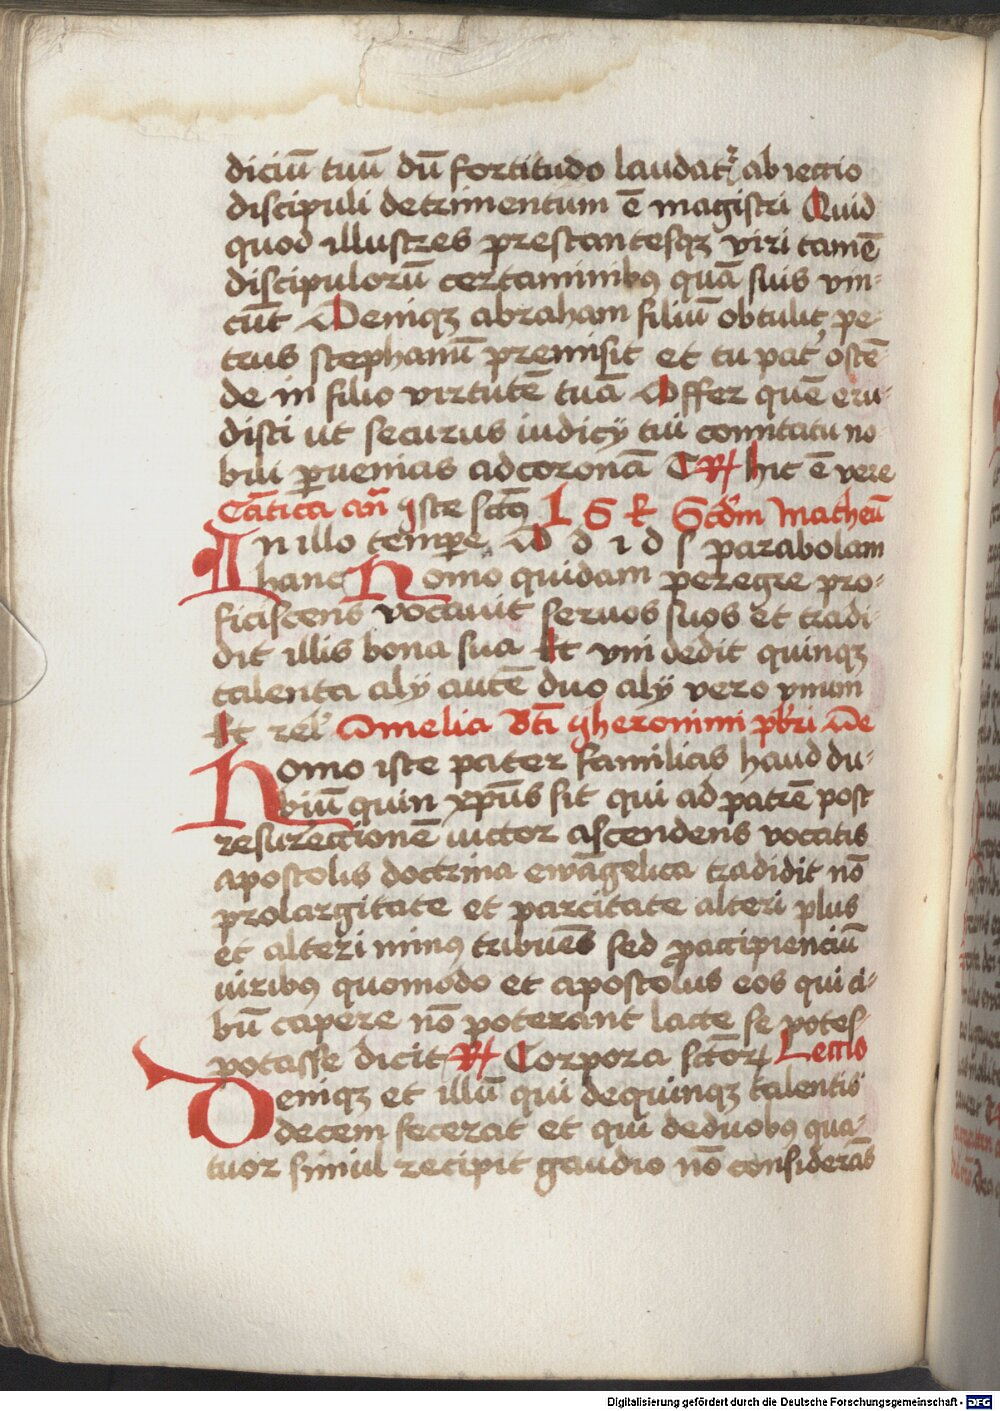 diciū tuū dū fortitudo laudatꝛ abiectio
discipuli detrimentum ē magistri Quid
quod illustres prestantesqꝫ viri tamē
discipulorū certaminibꝯ quā suis vin-
cūt Deniqꝫ abraham filiū obtulit pe-
trus stephanū premisit et tu patꝰ ostē-
de in filio virtutē tuā Offer quē eru-
disti ut securus iudicij tui comitatu no-
bili ꝑuenias ad coronā R Hic ē vere
Cātica an̄ Iste sctꝯ L S K Scd̄m Matheū
In illo tempe D d i d s parabolam
hanc Homo quidam peregre pro-
ficiscens vocavit servos suos et tradi-
dit illis bona sua Et vni dedit quinqꝫ
talenta alij autē duo alij vero vnum
Et rel' Omelia bt̄i gheronimi pb̄ri De
Homo iste pater familias haud du-
biū quin xp̄us sit qui ad patrē post
resurectionē uictor ascendens vocatis
apostolis doctrina ewāgelica tradidit nō
pro largitate et parcitate alteri plus
et alteri minꝯ tribuēs sed ꝓ accipienciū
uiribꝯ quomodo et apostolus eos qui ci-
bū capere nō poterant lacte se potes-
potasse dicit R Corpora sctōꝝ Lectio
Deniqꝫ et illū qui de quinqꝫ talentis
decem fecerat et qui de duobꝯ qua-
tuor simul recipit gaudio nō considerās
Digitalisierung gefördert durch die Deutsche Forschungsgemeinschaft - DFG